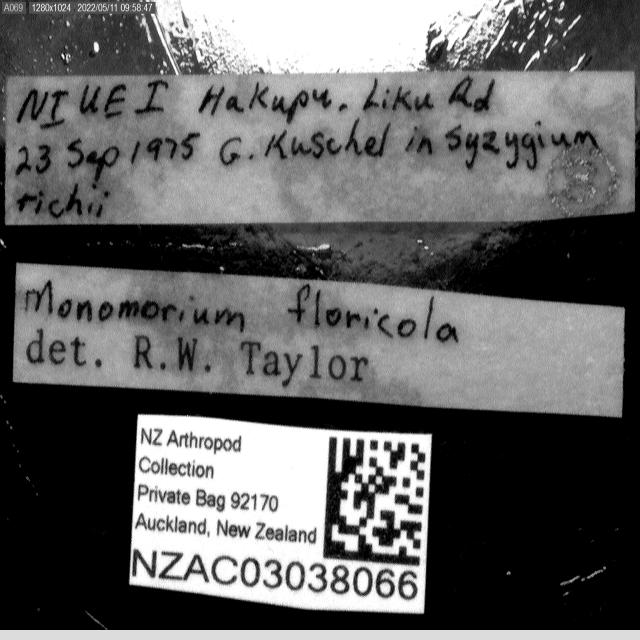 A069 1280x1024 2022/05/11 09:58:47
NIUE I Hakupu. Liku Rd
23 Sep 1975 G. Kuschel in Syzygium
richii
Monomorium floricola
det. R.W. Taylor
NZ Arthropod
Collection
Private Bag 92170
Auckland, New Zealand
NZAC03038066